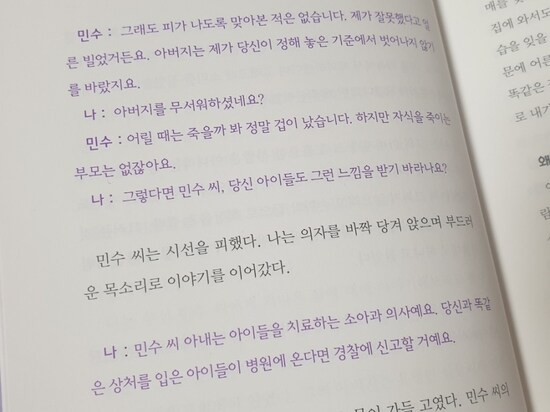 민수 : 그래도 피가 나도록 맞아본 적은 없습니다. 제가 잘못했다고
른 빌었거든요. 아버지는 제가 당신이 정해 놓은 기준에서 벗어나지 않기
를 바랐지요.
나 : 아버지를 무서워하셨네요?
민수 : 어릴 때는 죽을까 봐 정말 겁이 났습니다. 하지만 자식을 죽이는
부모는 없잖아요.
나 : 그렇다면 민수 씨, 당신 아이들도 그런 느낌을 받기 바라나요?
민수 씨는 시선을 피했다. 나는 의자를 바짝 당겨 앉으며 부드러
운 목소리로 이야기를 이어갔다.
나 : 민수 씨 아내는 아이들을 치료하는 소아과 의사예요. 당신과 똑같
은 상처를 입은 아이들이 병원에 온다면 경찰에 신고할 거예요.
가득 고였다. 민수 씨의
매를 맞
집에 와서도
습을 잊을
문에 어른
똑같은
로 내가
왜
람